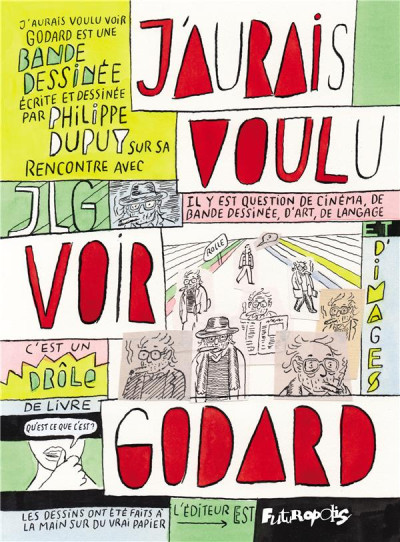 J'AURAIS VOULU VOIR
GODARD EST UNE
BANDE
DESSINÉE
ÉCRITE ET DESSINÉE
PAR PHILIPPE
DUPUY SUR SA
RENCONTRE AVEC
JLG
J'AURAIS
VOULU
IL Y EST QUESTION DE CINÉMA, DE
BANDE DESSINÉE, D'ART, DE LANGAGE
ET D'IMAGES
VOIR
ROLLE
?
C'EST UN
DRÔLE
DE LIVRE
QU'EST CE QUE C'EST ?
GODARD
LES DESSINS ONT ÉTÉ FAITS À
LA MAIN SUR DU VRAI PAPIER
L'ÉDITEUR EST
FUTUROPOLIS